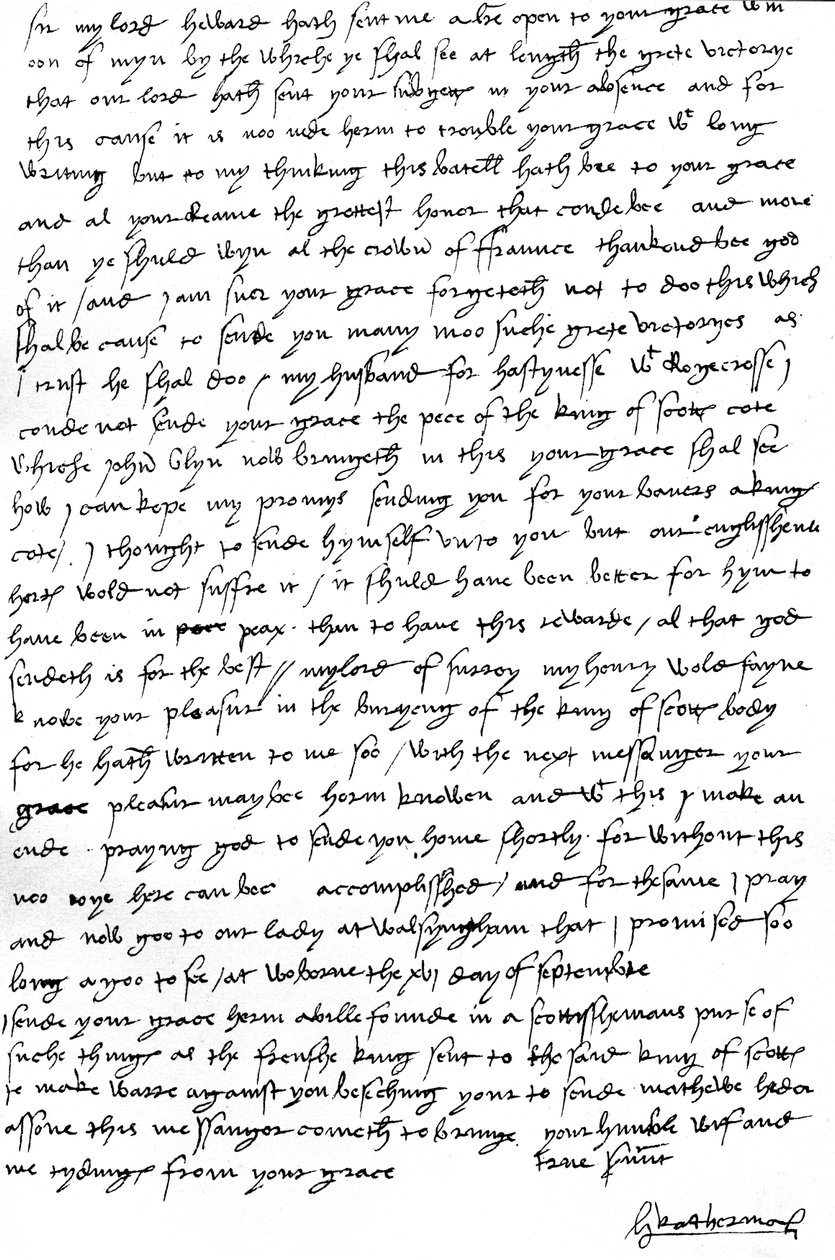 Sir my lord heward hath sent me a lre open to your grace wtin
oon of myn by the whiche ye shal see at length the grete victorye
that our lord hath sent your subgetts in your absence and for
this cause it is noo nede herin to trouble your grace wt long
writing but to my thinking this batell hath bee to your grace
and al your Reame the grettest honor that coude bee and more
than ye shuld wyn al the crown of ffraunce thankend bee god
of it / and I am suer your grace forgeteth not to doo this which
shal be cause to sende you many moo suche grete victoryes as
I trust he shal doo / my husband for hastynesse wt Rogecrosse I
coude not sende your grace the pece of the king of scotts cote
whiche John Glyn now bringeth in this your grace shal see
how I can kepe my promys sending you for your baners a kings
cote / I thought to sende hymself unto you but our englisshemens
herts wold not suffre it / it shuld have been better for hym to
have been in peax then to have this rewarde / al that god
sendeth is for the best // my lord of surrey my henry wold fayne
knowe your pleasur in the buryeng of the king of scotts body
for he hath written to me soo / with the next messanger your
grace pleasur may bee herin knowen and wt this I make an
ende praying god to sende you home shortly for without this
noo Ioye here can bee accomplisshed / and for the same I pray
and now goo to our lady at walsyngham that I promised soo
long agoo to see / at woborne the xvi day of septembre
I sende your grace herin a bille founde in a scottisshemans purse of
suche things as the frenshe king sent to the said king of scotts
to make warre against you beseching your to sende mathewe heder
assone this messanger cometh to bringe me tydings from your grace
your humble wif and
true svunt
Katherina